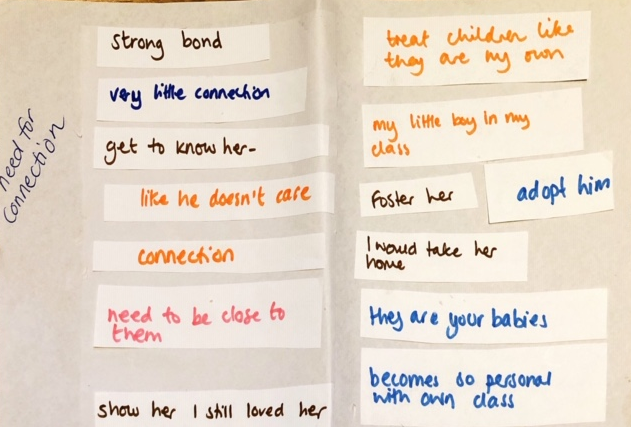 need for
connection
strong bond
very little connection
get to know her-
like he doesn't care
connection
need to be close to
them
show her I still loved her
treat children like
they are my own
my little boy in my
class
Foster her
adopt him
I would take her
home
they are your babies
becomes so personal
with own class